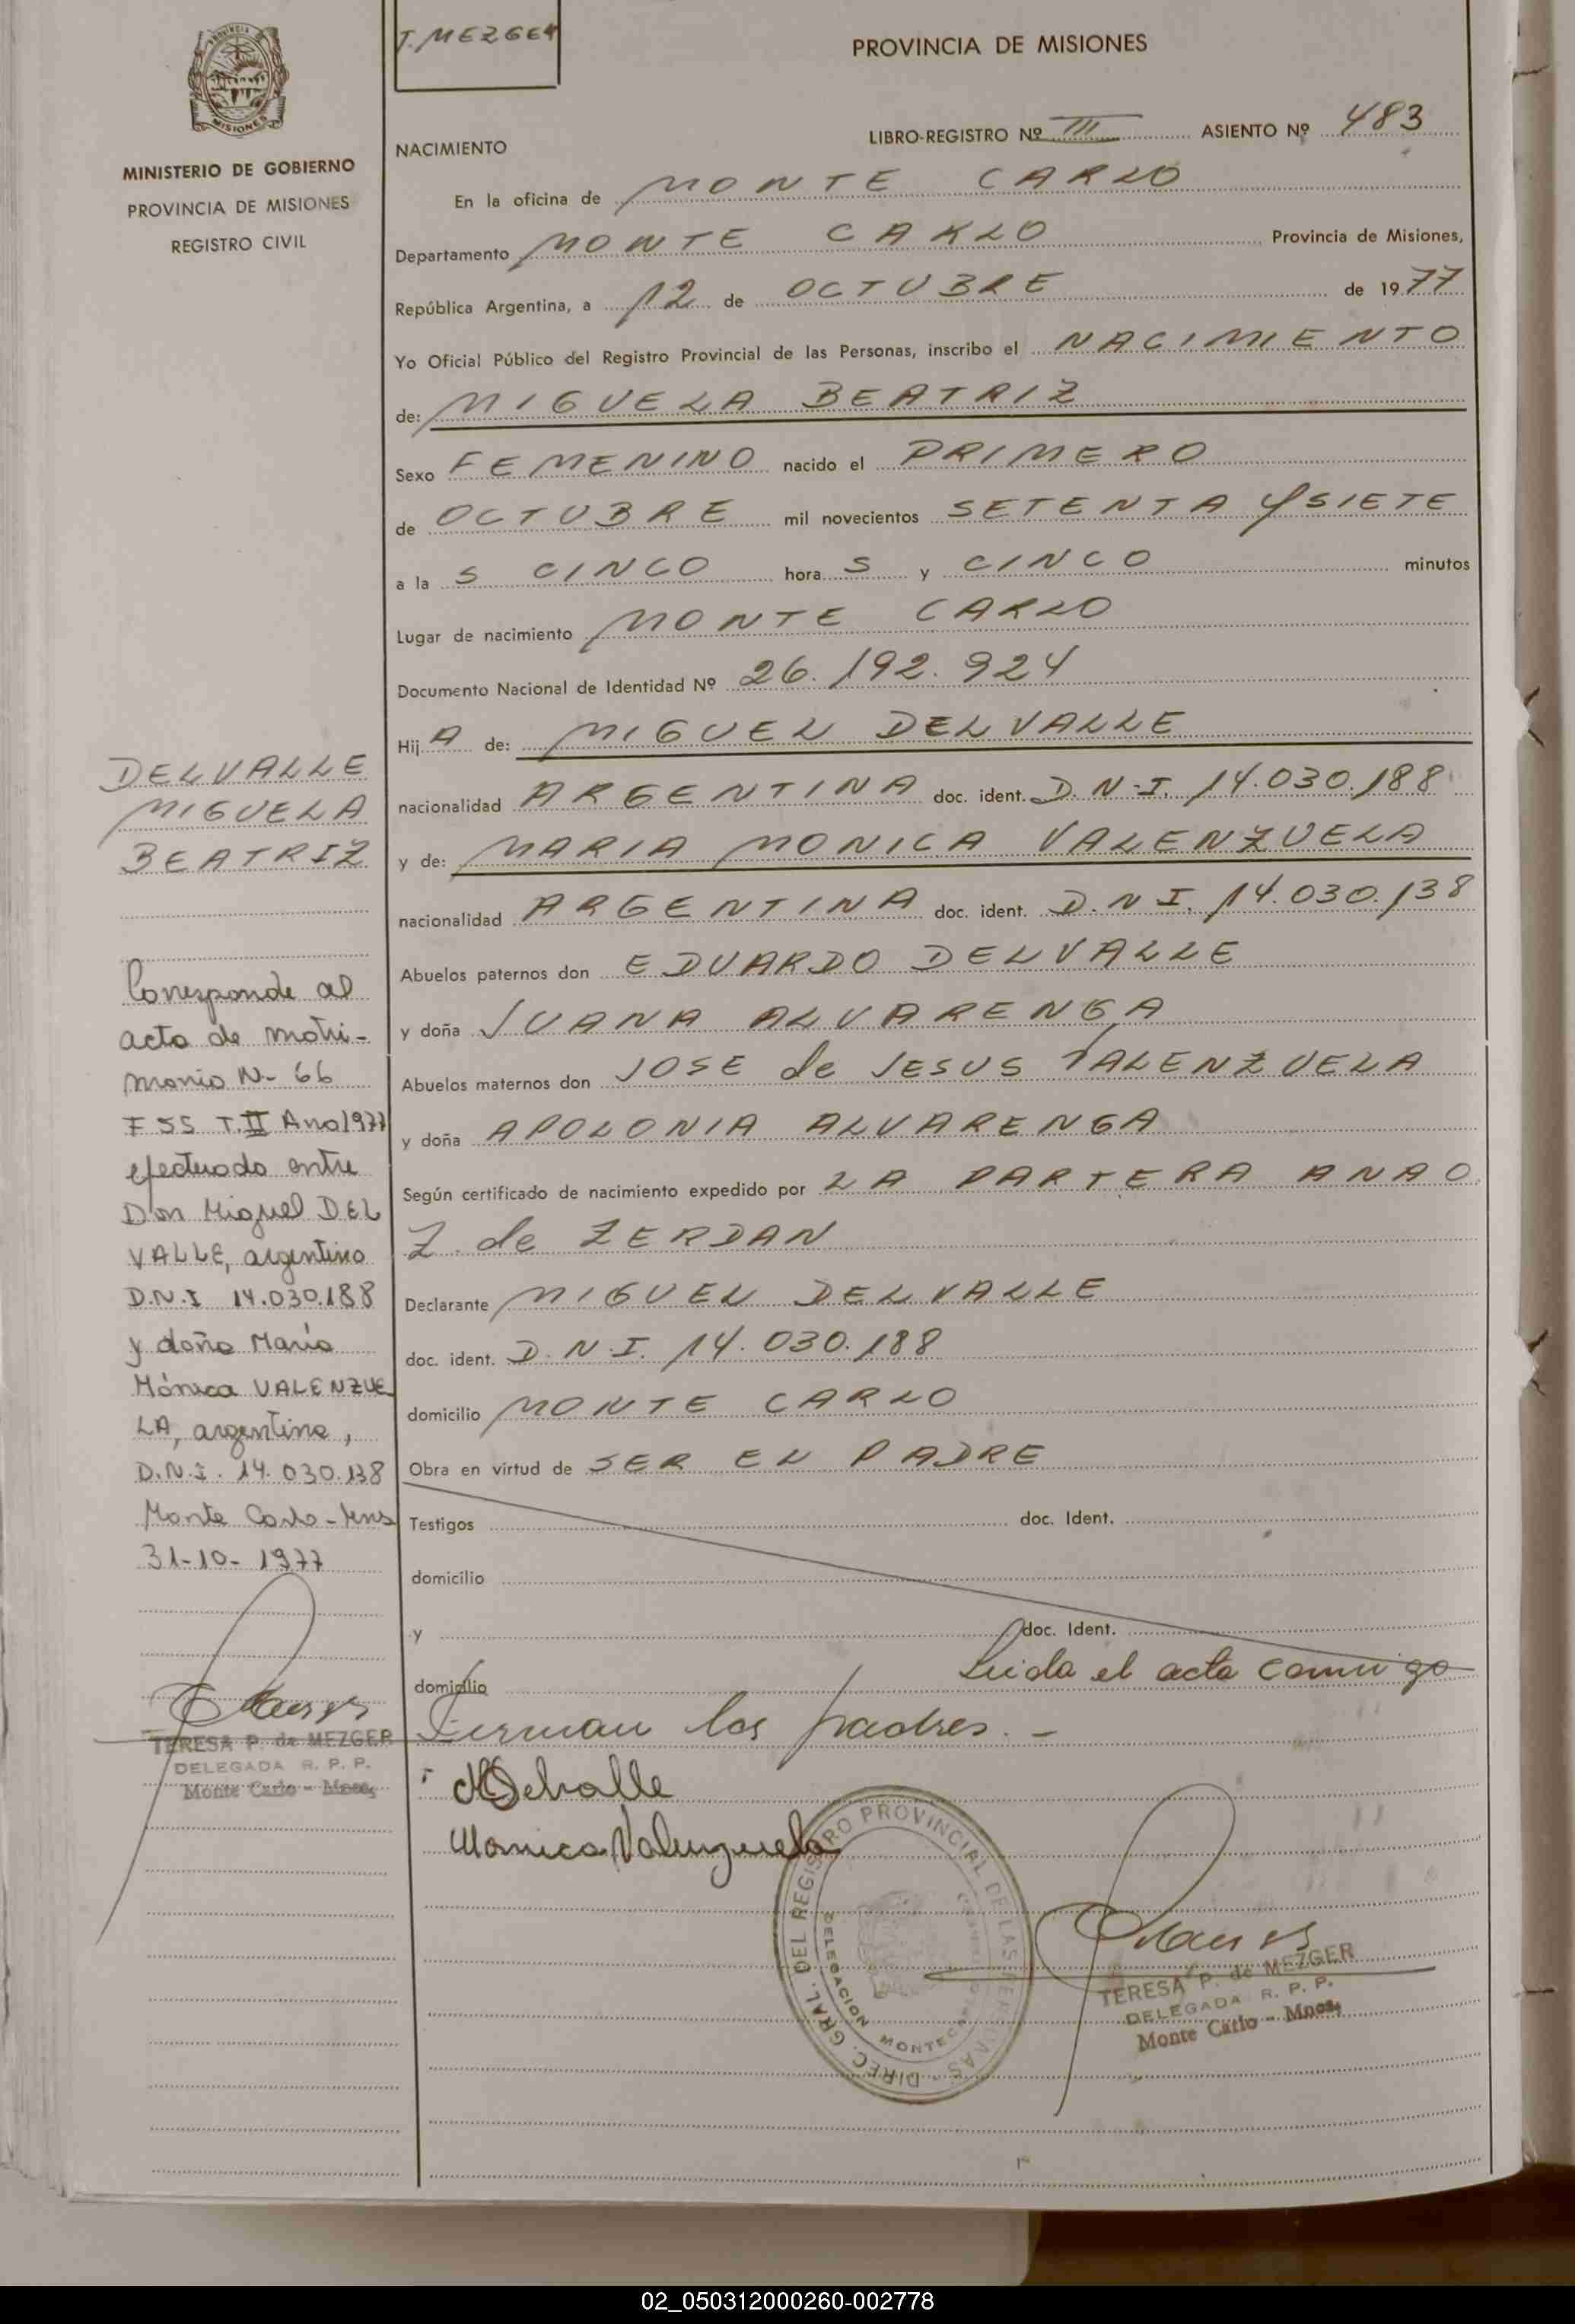 MISIONES
MINISTERIO DE GOBIERNO
PROVINCIA DE MISIONES
REGISTRO CIVIL
T. MEZGER
PROVINCIA DE MISIONES
LIBRO-REGISTRO Nº III ASIENTO Nº 483
NACIMIENTO
En la oficina de MONTE CARLO
Departamento MONTE CARLO Provincia de Misiones,
República Argentina, a 12 de OCTUBRE de 1977
Yo Oficial Público del Registro Provincial de las Personas, inscribo el NACIMIENTO
de: MIGUELA BEATRIZ
Sexo FEMENINO nacido el PRIMERO
de OCTUBRE mil novecientos SETENTA y SIETE
a la S CINCO hora S y CINCO minutos
Lugar de nacimiento MONTE CARLO
Documento Nacional de Identidad Nº 26.192.924
Hij A de: MIGUEL DELVALLE
nacionalidad ARGENTINA doc. ident. D.N.I. 14.030.188
y de: MARIA MONICA VALENZUELA
nacionalidad ARGENTINA doc. ident. D.N.I. 14.030.138
Abuelos paternos don EDUARDO DELVALLE
y doña JUANA ALVARENGA
Abuelos maternos don JOSE de JESUS VALENZUELA
y doña APOLONIA ALVARENGA
Según certificado de nacimiento expedido por LA PARTERA ANA O.
Z. de ZERDAN
Declarante MIGUEL DELVALLE
doc. ident. D.N.I. 14.030.188
domicilio MONTE CARLO
Obra en virtud de SER EL PADRE
Testigos doc. Ident.
domicilio
y doc. Ident.
domicilio Leida el acta conmigo
Firman los padres. -
MDelvalle
Monica Valenzuela
DIREC. GRAL. DEL REGISTRO PROVINCIAL DE LAS PERSONAS
DELEGACION MONTECARLO
TERESA P. de MEZGER
DELEGADA R. P. P.
Monte Carlo - Mnes.
DELVALLE
MIGUELA
BEATRIZ
Corresponde al
acta de matri-
monio N- 66
F 55 T. II Año 1977
efectuado entre
Don Miguel DEL
VALLE, argentino
D.N.I 14.030.188
y doña María
Mónica VALENZUE
LA, argentina,
D.N.I. 14.030.138
Monte Carlo - Mns
31-10-1977
TERESA P. de MEZGER
DELEGADA R. P. P.
Monte Carlo - Mnes.
02_050312000260-002778